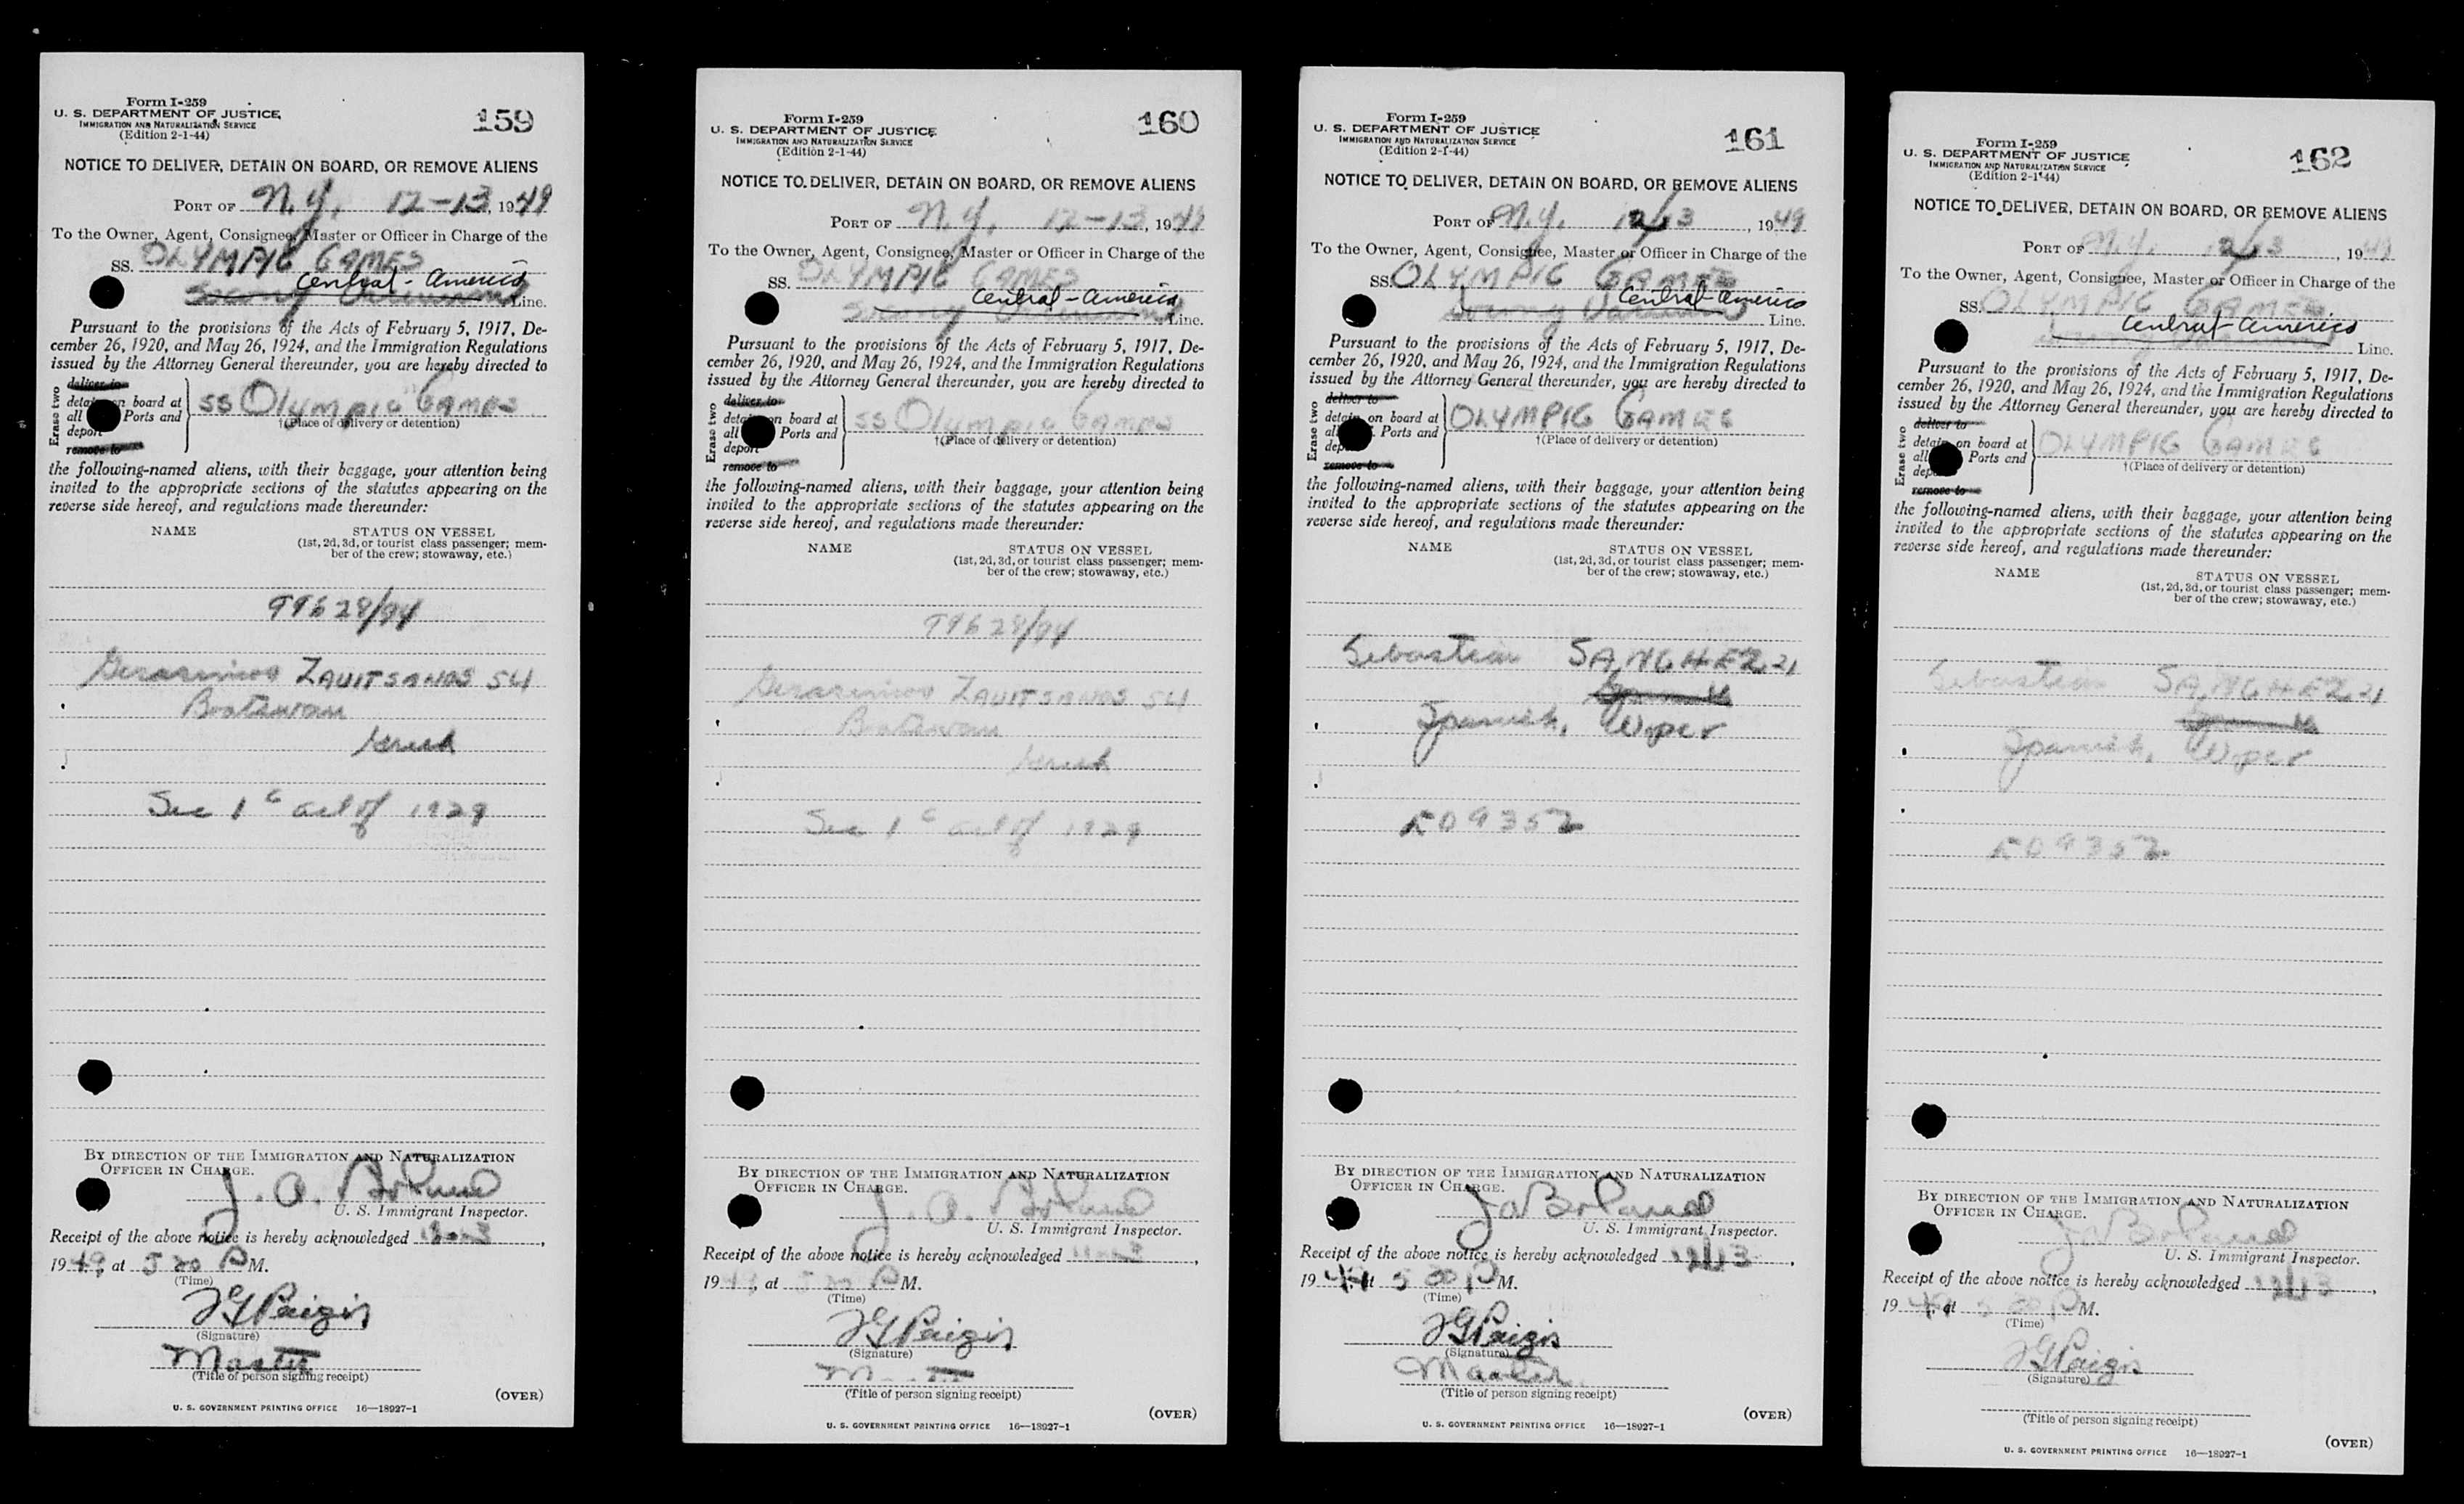 Form I-259
U. S. DEPARTMENT OF JUSTICE
IMMIGRATION AND NATURALIZATION SERVICE
(Edition 2-1-44)
159
NOTICE TO DELIVER, DETAIN ON BOARD, OR REMOVE ALIENS
PORT OF N.Y. 12-13, 1949
To the Owner, Agent, Consignee, Master or Officer in Charge of the
SS. OLYMPIC GAMES
Central-America Line.
Pursuant to the provisions of the Acts of February 5, 1917, De-
cember 26, 1920, and May 26, 1924, and the Immigration Regulations
issued by the Attorney General thereunder, you are hereby directed to
Erase two
deliver to
detain on board at
all Ports and
deport
remove to
SS Olympic Games
†(Place of delivery or detention)
the following-named aliens, with their baggage, your attention being
invited to the appropriate sections of the statutes appearing on the
reverse side hereof, and regulations made thereunder:
NAME STATUS ON VESSEL
(1st, 2d, 3d, or tourist class passenger; mem-
ber of the crew; stowaway, etc.)
99628/94
Gerasimos ZAVITSANOS 54
Boatswain
Greek
Sec 1 c act of 1929
BY DIRECTION OF THE IMMIGRATION AND NATURALIZATION
OFFICER IN CHARGE.
J. A. Borland
U. S. Immigrant Inspector.
Receipt of the above notice is hereby acknowledged
1949, at 5 20 P M.
(Time)
JG Paizis
(Signature)
Master
(Title of person signing receipt)
(OVER)
U. S. GOVERNMENT PRINTING OFFICE 16—18927-1
Form I-259
U. S. DEPARTMENT OF JUSTICE
IMMIGRATION AND NATURALIZATION SERVICE
(Edition 2-1-44)
160
NOTICE TO DELIVER, DETAIN ON BOARD, OR REMOVE ALIENS
PORT OF N.Y. 12-13, 1949
To the Owner, Agent, Consignee, Master or Officer in Charge of the
SS. OLYMPIC GAMES
Central-America Line.
Pursuant to the provisions of the Acts of February 5, 1917, De-
cember 26, 1920, and May 26, 1924, and the Immigration Regulations
issued by the Attorney General thereunder, you are hereby directed to
Erase two
deliver to
detain on board at
all Ports and
deport
remove to
SS Olympic Games
†(Place of delivery or detention)
the following-named aliens, with their baggage, your attention being
invited to the appropriate sections of the statutes appearing on the
reverse side hereof, and regulations made thereunder:
NAME STATUS ON VESSEL
(1st, 2d, 3d, or tourist class passenger; mem-
ber of the crew; stowaway, etc.)
99628/94
Gerasimos ZAVITSANOS 54
Boatswain
Greek
Sec 1 c act of 1929
BY DIRECTION OF THE IMMIGRATION AND NATURALIZATION
OFFICER IN CHARGE.
J. A. Borland
U. S. Immigrant Inspector.
Receipt of the above notice is hereby acknowledged
1949, at 5 20 P M.
(Time)
JG Paizis
(Signature)
(Title of person signing receipt)
(OVER)
U. S. GOVERNMENT PRINTING OFFICE 16—18927-1
Form I-259
U. S. DEPARTMENT OF JUSTICE
IMMIGRATION AND NATURALIZATION SERVICE
(Edition 2-1-44)
161
NOTICE TO DELIVER, DETAIN ON BOARD, OR REMOVE ALIENS
PORT OF N.Y. 12/13, 1949
To the Owner, Agent, Consignee, Master or Officer in Charge of the
SS. OLYMPIC GAMES
Central-America Line.
Pursuant to the provisions of the Acts of February 5, 1917, De-
cember 26, 1920, and May 26, 1924, and the Immigration Regulations
issued by the Attorney General thereunder, you are hereby directed to
Erase two
deliver to
detain on board at
all Ports and
deport
remove to
OLYMPIC GAMES
†(Place of delivery or detention)
the following-named aliens, with their baggage, your attention being
invited to the appropriate sections of the statutes appearing on the
reverse side hereof, and regulations made thereunder:
NAME STATUS ON VESSEL
(1st, 2d, 3d, or tourist class passenger; mem-
ber of the crew; stowaway, etc.)
Sebastian SANCHEZ 21
Spanish, Wiper
509352
BY DIRECTION OF THE IMMIGRATION AND NATURALIZATION
OFFICER IN CHARGE.
JA Borland
U. S. Immigrant Inspector.
Receipt of the above notice is hereby acknowledged 12/13,
1949, at 5 30 P M.
(Time)
JG Paizis
(Signature)
Master
(Title of person signing receipt)
(OVER)
U. S. GOVERNMENT PRINTING OFFICE 16—18927-1
Form I-259
U. S. DEPARTMENT OF JUSTICE
IMMIGRATION AND NATURALIZATION SERVICE
(Edition 2-1-44)
162
NOTICE TO DELIVER, DETAIN ON BOARD, OR REMOVE ALIENS
PORT OF N.Y. 12/13, 1949
To the Owner, Agent, Consignee, Master or Officer in Charge of the
SS. OLYMPIC GAMES
Central-America Line.
Pursuant to the provisions of the Acts of February 5, 1917, De-
cember 26, 1920, and May 26, 1924, and the Immigration Regulations
issued by the Attorney General thereunder, you are hereby directed to
Erase two
deliver to
detain on board at
all Ports and
deport
remove to
OLYMPIC GAMES
†(Place of delivery or detention)
the following-named aliens, with their baggage, your attention being
invited to the appropriate sections of the statutes appearing on the
reverse side hereof, and regulations made thereunder:
NAME STATUS ON VESSEL
(1st, 2d, 3d, or tourist class passenger; mem-
ber of the crew; stowaway, etc.)
Sebastian SANCHEZ 21
Spanish, Wiper
509352
BY DIRECTION OF THE IMMIGRATION AND NATURALIZATION
OFFICER IN CHARGE.
JA Borland
U. S. Immigrant Inspector.
Receipt of the above notice is hereby acknowledged 12/13,
1949, at 5 30 P M.
(Time)
JG Paizis
(Signature)
(Title of person signing receipt)
(OVER)
U. S. GOVERNMENT PRINTING OFFICE 16—18927-1